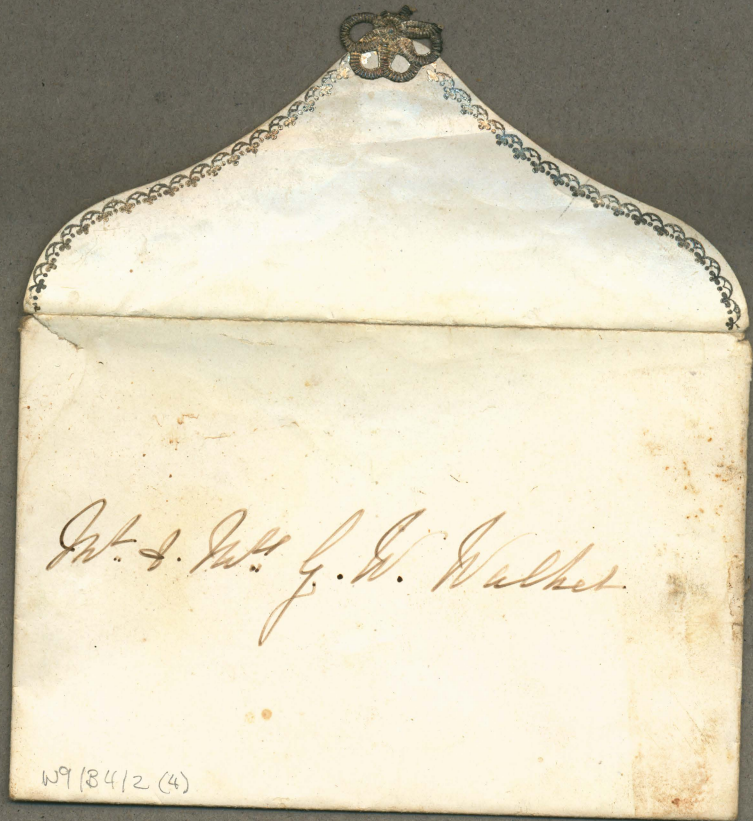 Mr. & Mrs G. W. Walker
W9/B4/2 (4)